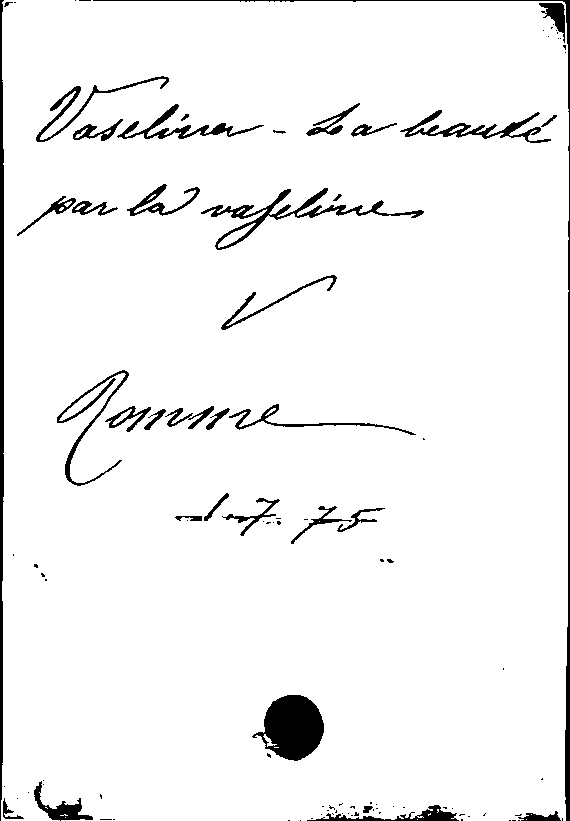 Vaseline - La beauté
par la vaseline
V
Romme
1.7.75